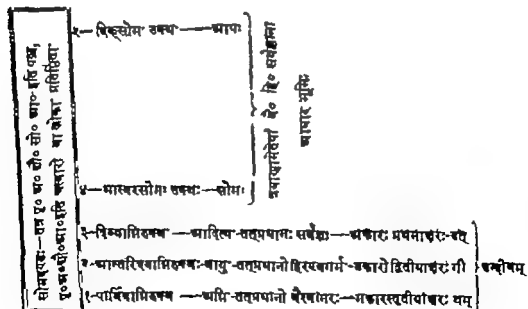 सोमत्रयः—तत्र पृ० अ० द्यौ० सो० आ० इति पञ्च,
पृ० अ० द्यौ० आ० इति चत्वारो वा लोका प्रतिष्ठिता
५—दिक्सोम उक्थ—आपः
४—भास्वरसोमः उक्थः—सोमः
त्रयाणामेतेषां वै हि सर्वज्ञाना
आधार भूमिः
३—दिव्याग्निरुक्थ—आदित्य-तत्प्रधानः सर्वज्ञः—अकारः प्रथमाक्षरः-उत्
२—आन्तरिक्ष्याग्निरुक्थः-वायु-तत्प्रधानो हिरण्यगर्भ-उकारो द्वितीयाक्षरः गी
१—पार्थिवाग्निरुक्थ—अग्नि-तत्प्रधानो वैश्वानरः—मकारस्तृतीयाक्षरः थम्
उद्गीथम्